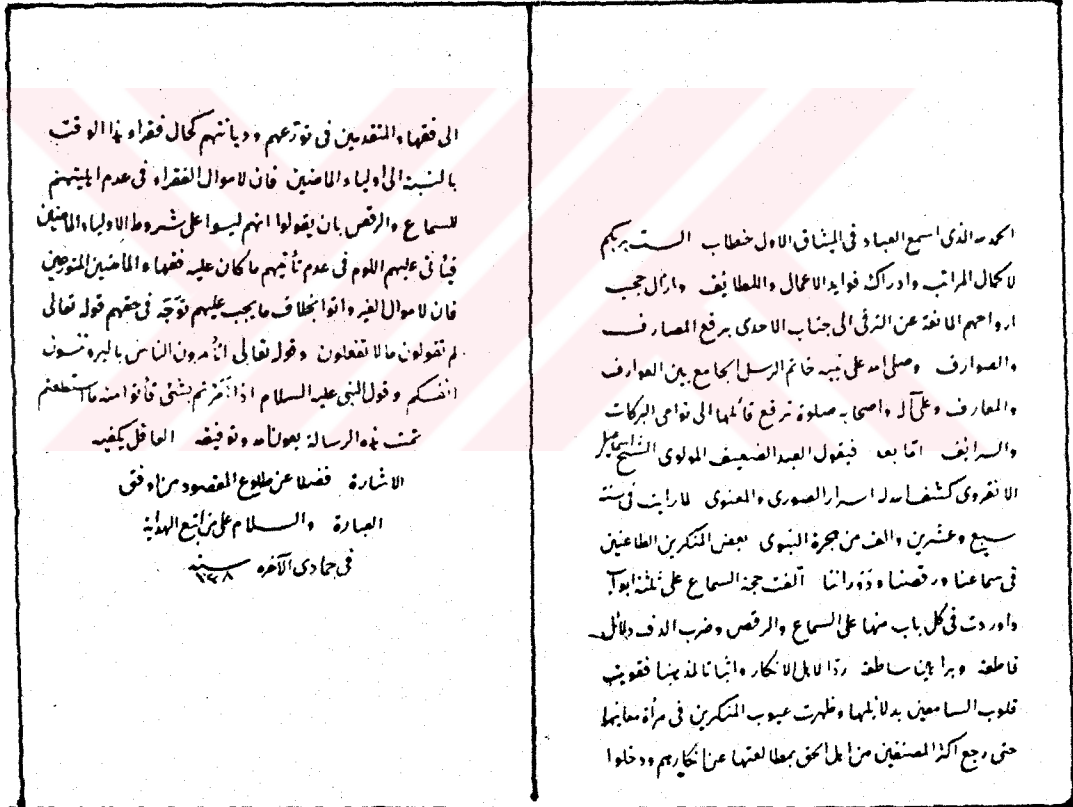 الحمد لله الذى اسمع العباد فى الميثاق الاول خطاب الست بربكم
لا كمال المراتب وادراك فوايد الاعمال واللطايف وازال حجب
ارواحهم المانعة عن الترقى الى جناب الاحدى برفع المصارف
والصوارف وصلى الله على نبيه خاتم الرسل الجامع بين العوارف
والمعارف وعلى آله واصحابه صلوة ترفع قائلها الى نوامى البركات
اما بعد فيقول العبد الضعيف المولوى الشيخ اسماعيل
الانقروى كشف الله له اسرار الصورى والمعنوى لما رايت فى سنة
سبع وعشرين والف من هجرة النبوى بعض المنكرين الطاعنين
فى سماعنا ورقصنا ودوراننا الفت حجة السماع على ثلثة ابواب
واوردت فى كل باب منها على السماع والرقص وضرب الدف دلائل
قاطعة وبراهين ساطعة ردا لاهل الانكار واثباتا لمذهبنا فقويت
قلوب السامعين بدلائلها وظهرت عيوب المنكرين فى مرأة معانيها
حتى رجع اكثر المصنفين من اهل الحق بمطالعتها عن انكارهم ودخلوا
الى فقهاء المتقدمين فى تورعهم وديانتهم كحال فقراء هذا الوقت
بالنسبة الى اولياء الماضين فان لاموا الفقراء فى عدم اهليتهم
للسماع والرقص بان يقولوا انهم ليسوا على شروط الاولياء الماضين
فيأتى عليهم اللوم فى عدم تأتيهم ما كان عليه فقهاء الماضين المتورعين
فان لاموا الغير واتوا بخلاف ما يجب عليهم توجه فى حقهم قوله تعالى
لم تقولون ما لا تفعلون وقوله تعالى اتأمرون الناس بالبر وتنسون
انفسكم وقول النبى عليه السلام اذا امرتم بشئ فأتوا منه ما استطعتم
تمت هذه الرسالة بعون الله وتوفيقه العاقل يكفيه
الاشارة فضلا عن طلوع المقصود من اوفق
العبارة والسلام على من اتبع الهداية
فى جمادى الآخره سنه